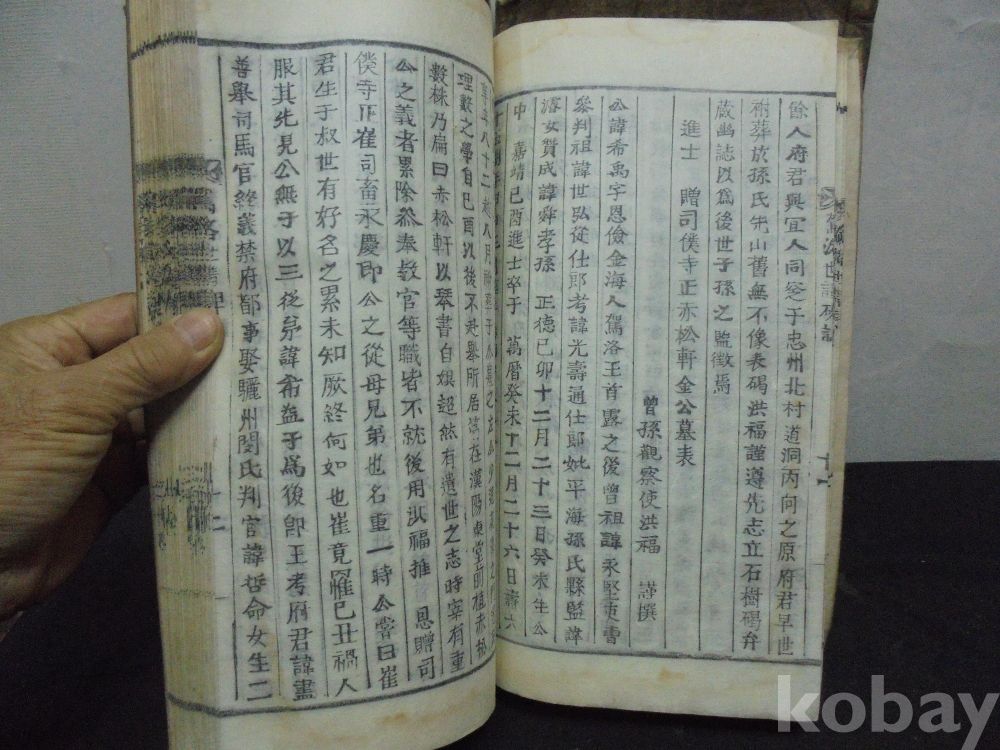 餘人府君與宜人同窆于忠州北村道洞丙向之原府君早世
祔葬於孫氏先山舊無不像表碣洪福謹遵先志立石樹碣幷
蕆幽誌以爲後世子孫之監徵焉
進士 贈司僕寺正赤松軒金公墓表
曾孫觀察使洪福 謹撰
公諱希禹字恩儉金海人駕洛王首露之後曾祖諱永堅吏曹
參判祖諱世弘從仕郎考諱光壽通仕郎妣平海孫氏縣監諱
女贊成諱舜孝孫 正德己卯十二月二十三日癸未生公
中 嘉靖己酉進士卒于 萬曆癸未十二月二十六日壽六
年八十二
理數之學自己酉以後不赴擧所居在漢陽東堂前植赤松
數株乃扁曰赤松軒以琴書自娛超然有遺世之志時宰有重
公之義者累除叅奉敎官等職皆不就後用洪福推 恩贈司
僕寺正崔司畜永慶卽公之從母兄弟也名重一時公嘗曰崔
君生于叔世有好名之累未知厥終何如也崔竟罹己丑禍人
服其先見公無子以三從弟諱希益子爲後卽王考府君諱畫
善擧司馬官終義禁府都事娶驪州閔氏判官諱哲命女生二
駕洛世譜碑